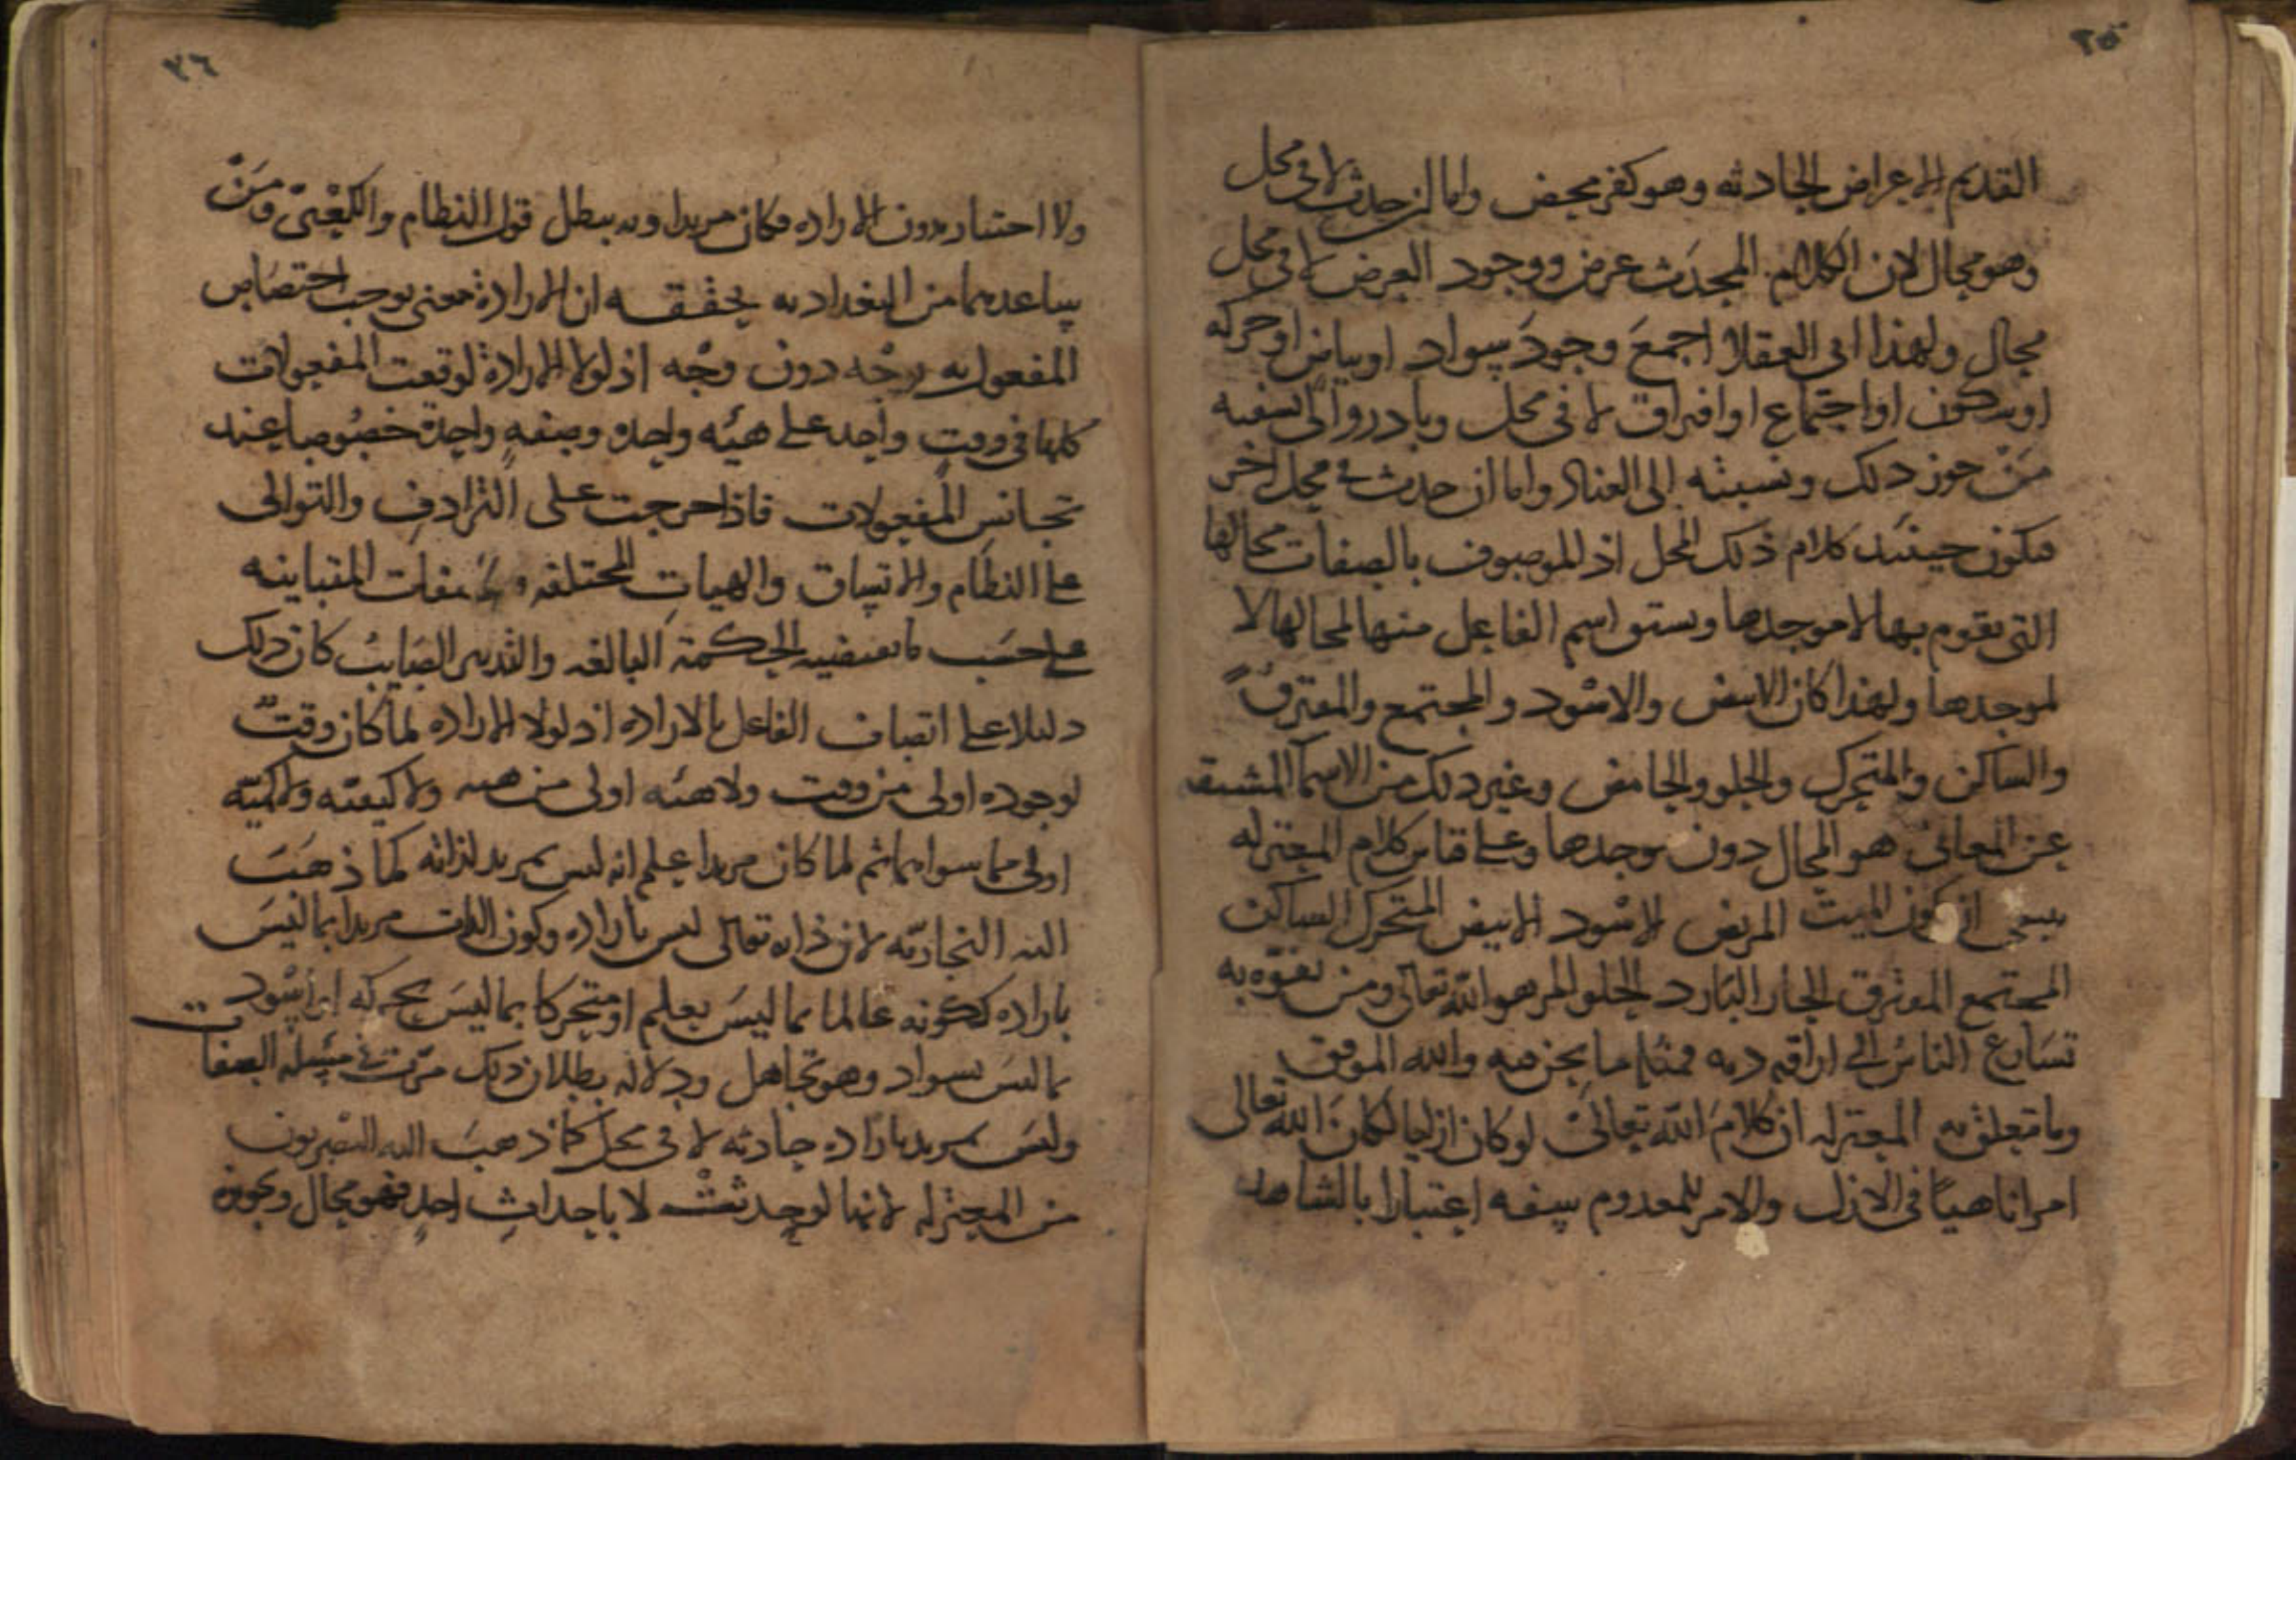 ٢٥
القديم الاعراض الحادثه وهو كفر محض واما ان حدث لا فى محل
وهو محال لان الكلام المحدَث عرض ووجود العرض لا فى محل
محال ولهذا ابى العقلا اجمعَ وجودَ سواد او بياض او حركه
او سكون او اجتماع او افتراق لا فى محل وبادروا الى تسفيه
مَنْ جوز ذلك ونسبته الى العناد واما ان حدث فى محل اخر
فيكون حينئد كلام ذلك المحل اذ الموصوف بالصفات محالها
التى تقوم بها لا موجدها ويستو اسم الفاعل منها لمحالها لا
لموجدها ولهذا كان الابيض والاسود والمجتمع والمفترق
والساكن والمتحرك والحلو والحامض وغير ذلك من الاسما المشتقه
عن المعانى هو المحال دون موجدها وعلى قياس كلام المعتزله
ينبغى ان يكون الميت المريض الاسود الابيض المتحرك الساكن
المجتمع المفترق الحار البارد الحلو المر هو الله تعالى ومن تفوّه به
تسارع الناس الى اراقه دمه فمثله ما نحن فيه والله الموفق
وما تتعلق به المعتزله ان كلامَ الله تعالى لو كان ازليا لكان الله تعالى
امرا ناهيًا فى الازل والامر للمعدوم سفه اعتبارا بالشاهد
٢٦
ولا اختيار بدون الاراده فكان مريدا وبه يبطل قول النظام والكعبى ومَنْ
يساعدهما من البغداديه يحققه ان الارادة معنى يوجب اختصاص
المفعول به بوجه دون وجه اذ لولا الارادة لوقعت المفعولات
كلها فى وقت واحد على هيئه واحده وصفه واحدة خصوصا عند
تجانس المفعولات فاذا خرجت على الترادف والتوالى
على النظام والاتساق والهيات المختلفه والصفات المتباينه
على حسَب ما تقتضيه الحكمة البالغه والتدبير الصايب كان ذلك
دليلا على اتصاف الفاعل بالاراده اذ لولا الاراده لما كان وقت
لوجوده اولى من وقت ولا هيئه اولى من هيئه ولا كيفيته ولا كميّه
اولى مما سواهما ثم لما كان مريدا علم انه ليس بمريد لذاته كما ذهَبَت
اليه النجاريّه لان ذاته تعالى ليس باراده وكون الذات مريدا بما ليسَ
باراده ككونه عالما بما ليسَ بعلم او متحركا بما ليسَ بحركه او اسود
بما ليسَ بسواد وهو تجاهل ودلاله بطلان ذلك مرّت فى مسئله الصفات
وليسَ بمريد باراده حادثه لا فى محل كما ذهبَ اليه البَصريون
من المعتزله لانها لو حدثت لا باحداثِ احدٍ فهو محال وتجويزه